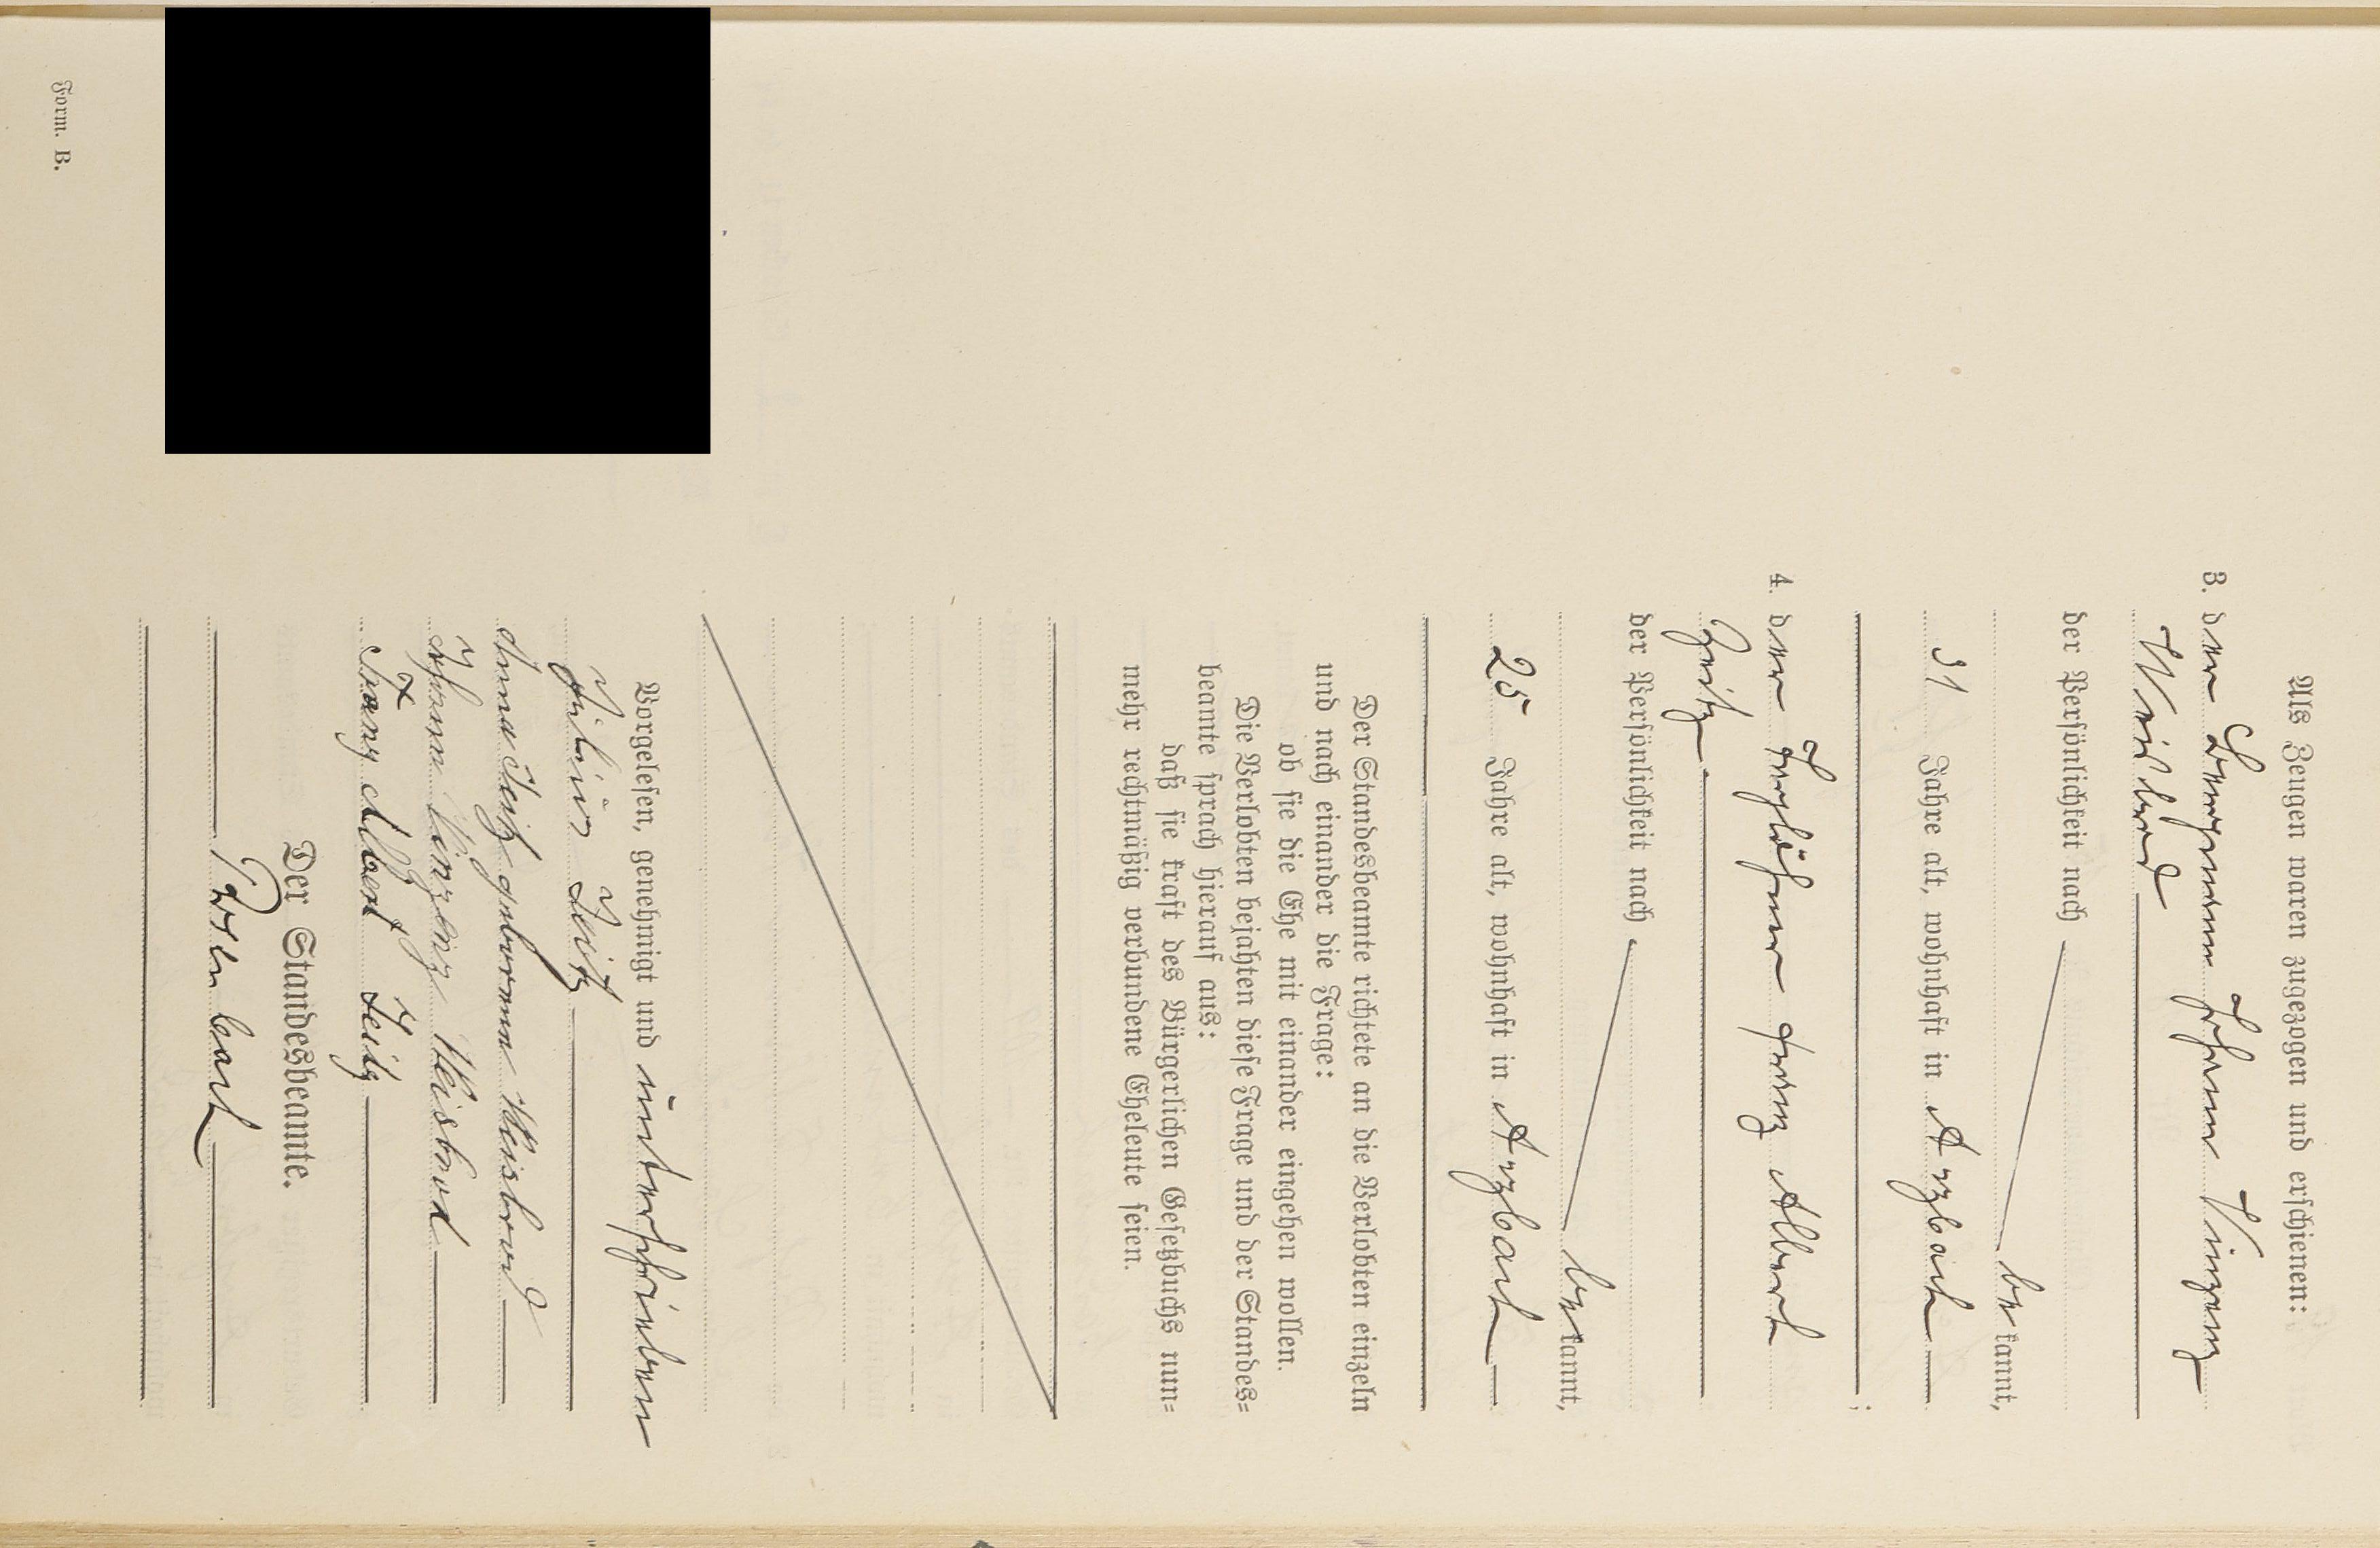 Als Zeugen waren zugezogen und erschienen:
3. der Bergmann Johann Vinzenz
Weisbrod
der Persönlichkeit nach
be kannt,
31 Jahre alt, wohnhaft in Arzbach
;
4. der Taglöhner Franz Albert
Zeitz
der Persönlichkeit nach
be kannt,
25 Jahre alt, wohnhaft in Arzbach
Der Standesbeamte richtete an die Verlobten einzeln
und nach einander die Frage:
ob sie die Ehe mit einander eingehen wollen.
Die Verlobten bejahten diese Frage und der Standes=
beamte sprach hierauf aus:
daß sie kraft des Bürgerlichen Gesetzbuchs nun=
mehr rechtmäßig verbundene Eheleute seien.
Vorgelesen, genehmigt und unterschrieben
Zeitz
Anna Zeitz geborene Weisbrod
Johann Vinzenz Weisbrod
Franz Albert Zeitz
Der Standesbeamte.
Form. B.